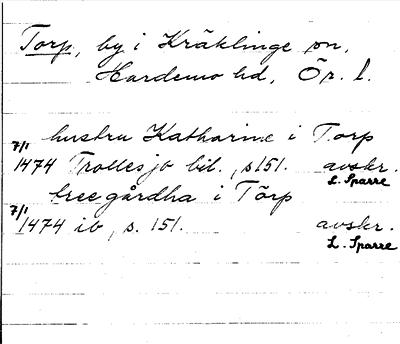 Torp, by i Kräklinge sn,
Hardemo hd, Ör. l.
hustru Katharine i Torp
7/1 1474 Trollesjö bil., s 151. avskr.
L. Sparre
tree gårdha i Törp
7/1 1474 ib, s. 151. avskr.
L. Sparre